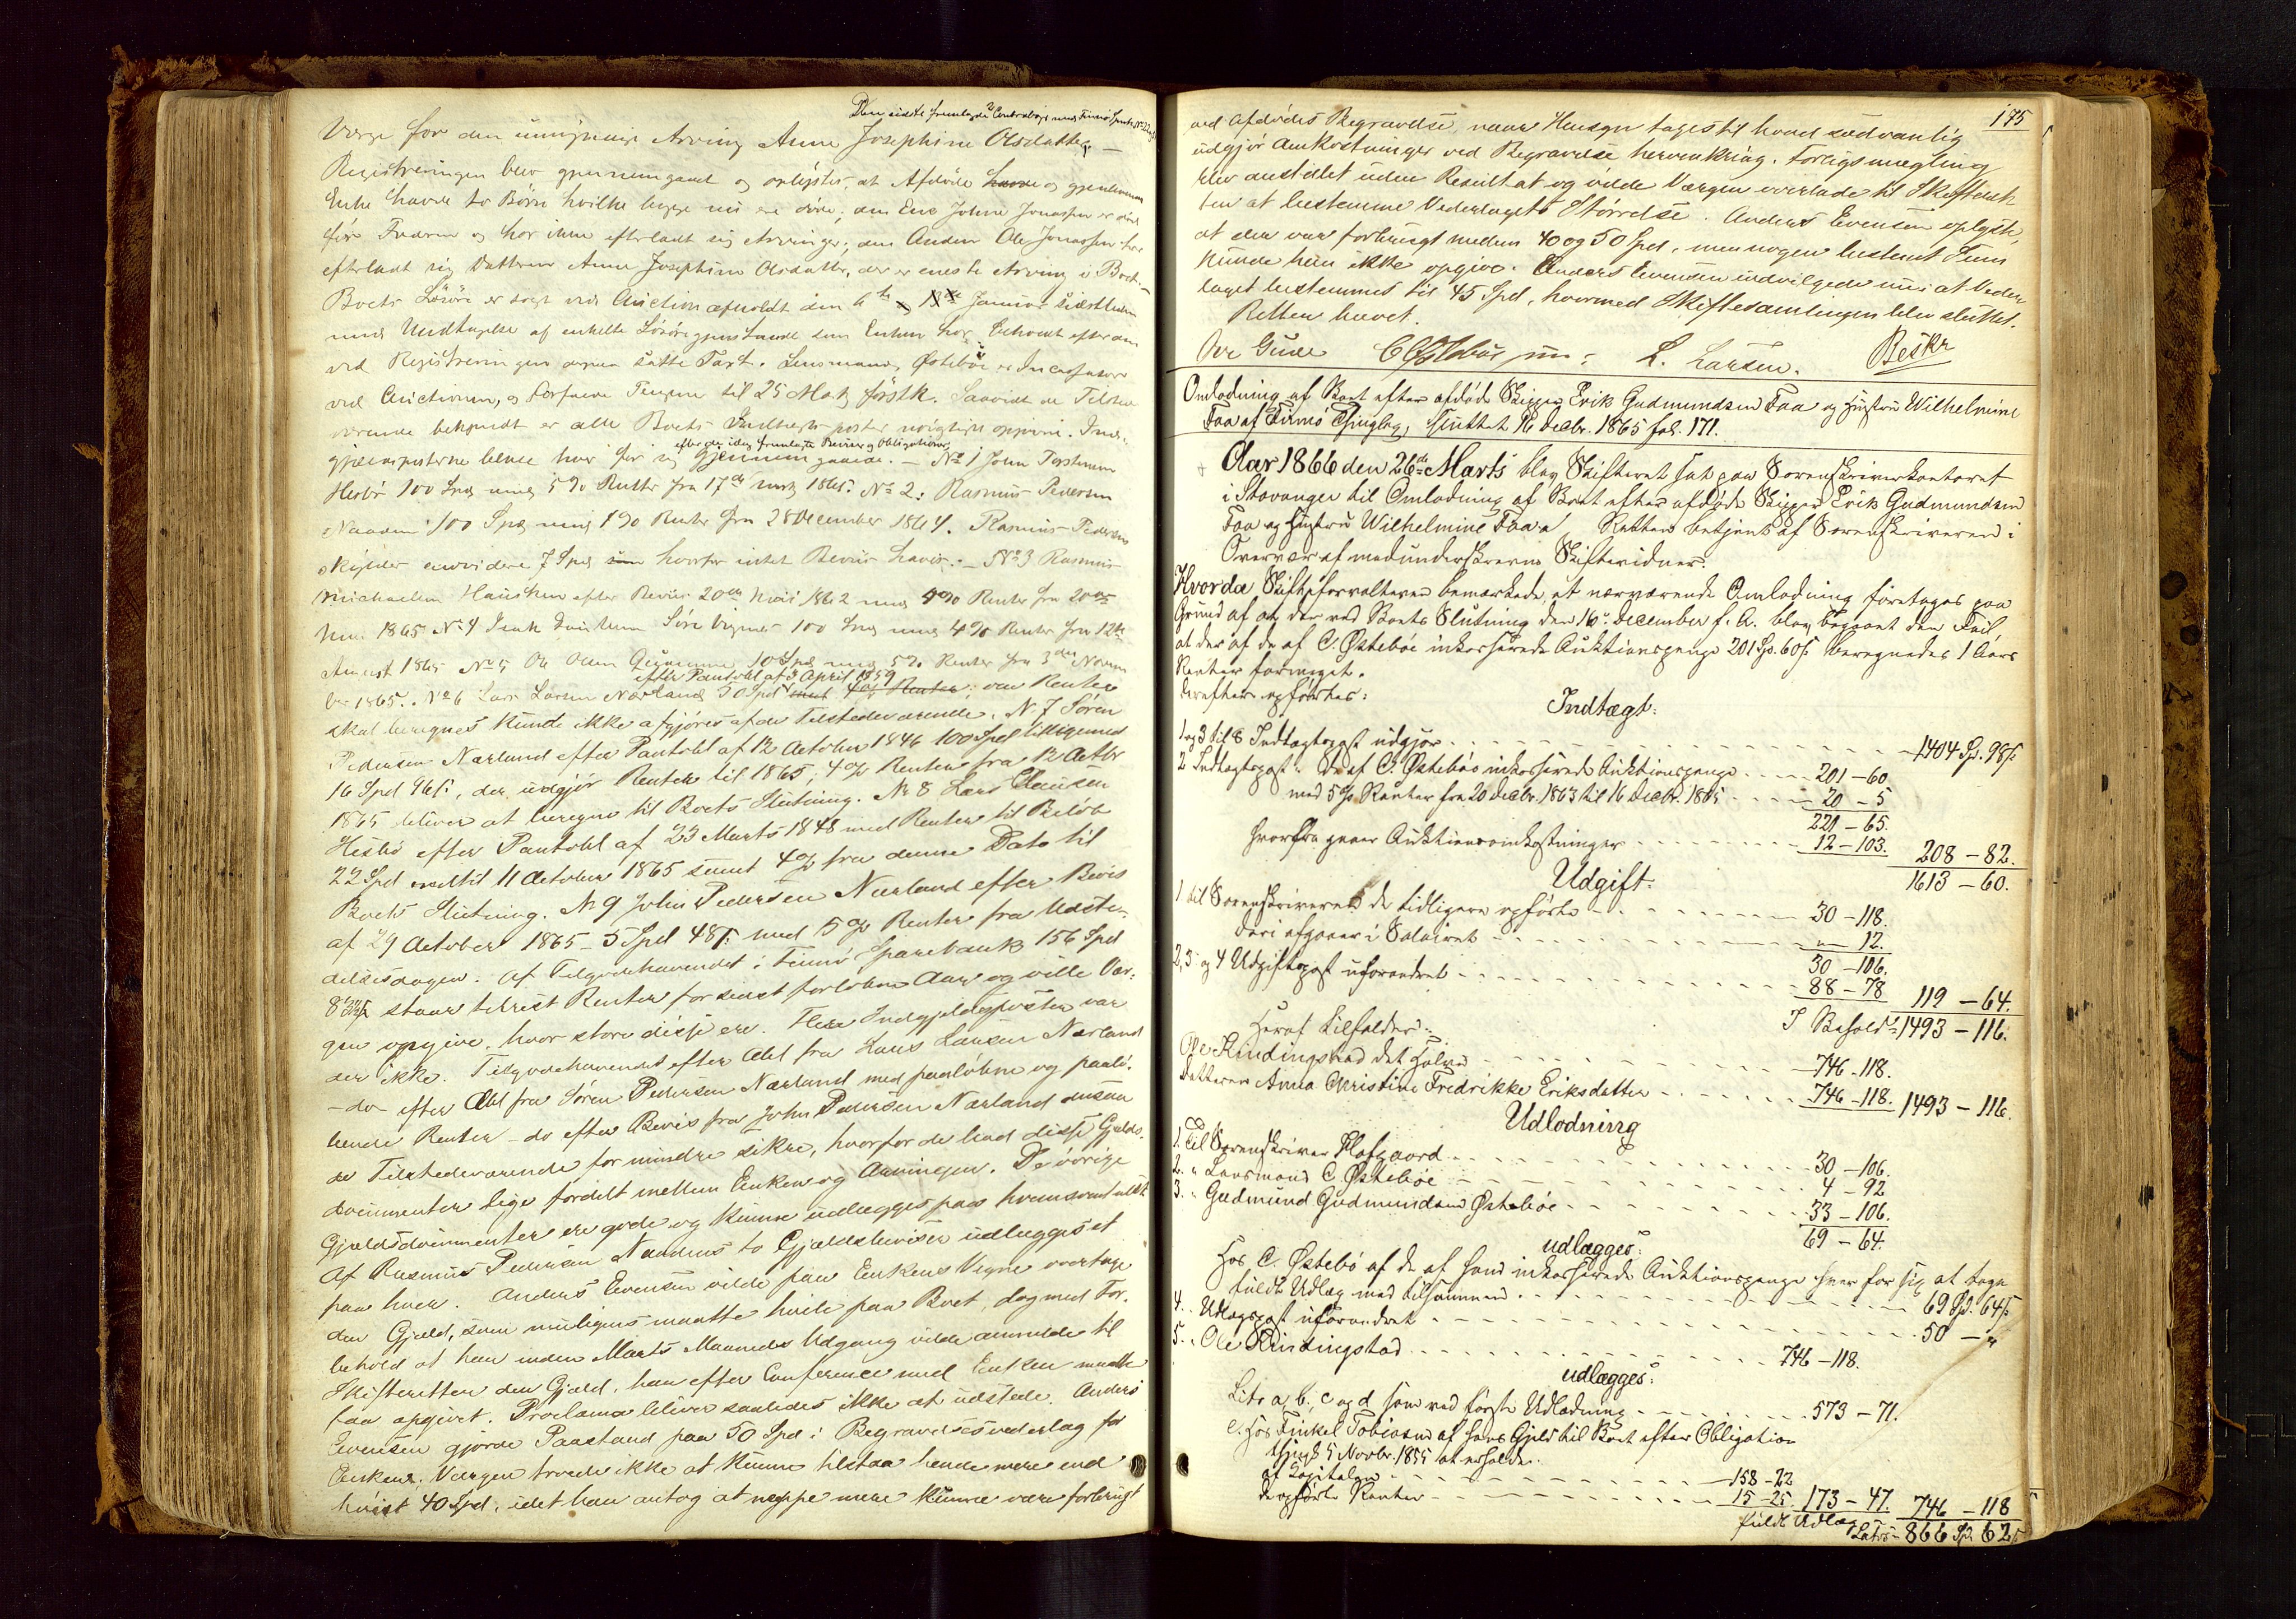 Værge for den umyndige Arving Anne Josephine Olsdatter. —
Registreringen blev gjennemgaaet og oplystes, at Afdøde havde og gjenlevende
Enke havde to Børn hvilke begge nu ere døde; den Ene John Jonassen er død
før Faderen og har ikke efterladt sig Arvinger; den Anden Ole Jonassen har
efterladt sig Datteren Anne Josephine Olsdatter, der er eneste Arving i Boet. —
Boets Løsøre er solgt ved Auction afholdt den 4de og Januar sidstleden
med Undtagelse af enkelte Løsøregjenstande som Enken har beholdt efter den
ved Registreringen derpaa satte Taxt. Lensmand Østebøe er Incassator
ved Auctionen, og Forfalds Tiden til 25 Marts førstk. Saavidt de Tilstede-
værende bekjendt er alle Boets Udlægs poster rigtigen opgivne. Ind-
efter de idag fremlagte Beviser og Obligationer
gjældsposterne bleve hver for sig gjennemgaaede. — No 1 John Torstensen
Hesbø 100 Spd med 5% Rente fra 17de 1865. No 2: Rasmus Pedersen
Naaden 100 Spd med Rente fra 28 December 1864. Rasmus Pedersen
skylder endvidere 7 Spd som hvorfor intet Beviis haves. — No 3 Rasmus
Michaelsen efter Beviis 20de 1862 med 4% Renter fra 20de
1865 No 4 100 Spd med 4% Renter fra 12te
August 1865 No 5 Ole Olsen 10 Spd med 5% Renter fra 3die Novem
efter Pantobl af 3 April 1859
ber 1865. No 6 Lars Larsen Nærland 50 Spd samt 4% Renter: var Renter
skal beregnes kunde ikke afgjøres af de Tilstedeværende. No 7 Søren
Pedersen Nærland efter Pantobl af 12 October 1846 100 Spd tilligemed
16 Spd 96 s, der udgjør Renter til 1865, 4% Renter fra 12 Octbr
1865 bliver at beregne til Boets Slutning. No 8 Lars Clausen
Hesbø efter Pantobl af 23 Marts 1848 med Renter til Beløb
22 Spd indtil 11 October 1865 samt 4% fra denne Dato til
Boets Slutning. No 9 John Pedersen Nærland efter Bevis
af 29 October 1865 - 5 Spd 48 s. med 5% Renter fra Udste-
delsesdagen. Af Tilgodehavendet i Finnø Sparebank 156 Spd
8 s staar tilrest Renter for sidst forløbne Aar og vilde Vær-
gen opgive, hvor store disse ere. Flere Indgjeldsposter var
der ikke. Tilgodehavendet efter Obl fra Lars Larsen Nærland
- do - efter Obl fra Søren Pedersen Nærland med paaløbne og paalø-
bende Renter - do efter Bevis fra John Pedersen Nærland ansaa
de Tilstedeværende for mindre sikre, hvorfor de bad disse Gjelds-
documenter lige fordelt mellem Enken og Arvingen. De øvrige
Gjældsdocumenter ere gode og kunne udlægges paa hvemsomhelst
Af Rasmus Pedersen Naadens to Gjældsbeviser udlægges et
paa hver. Anders Evensen vilde paa Enkens Vegne overtage
den Gjæld, som muligens maatte hvile paa Boet, dog med For-
behold at han inden Marts Maaneds Udgang vilde anmelde til
Skifteretten den Gjæld, han efter Conference med Enken maatte
faa opgivet. Proclama bliver saaledes ikke at udstede. Anders
Evensen gjorde Paastand paa 50 Spd i Begravelsesvederlag for
Enken. Værgen troede ikke at kunne tilstaa hende mere end
høist 40 Spd, idet han antog at neppe mere kunne være forbrugt
175
ved Afdødes Begravelse, naar Hensyn tages til hvad sædvanlig
udgjør Omkostninger ved Begravelse heromkring. Forligsmægling
blev anstillet uden Resultat og vilde Værgen overlade til Skifteret-
ten at bestemme Vederlagets Størrelse. Anders Evensen oplyste,
at der var forbrugt mellem 40 og 50 Spd, men nogen bestemt Sum
kunde han ikke opgive. Anders Evensen indvilgede nu i at Veder-
laget bestemmes til 45 Spd, hvormed Skiftesamlingen blev sluttet.
Retten hævet.
Ove Gude C Østebøe L. Larsen. Beskr
Omlodning af Boet efter afdøde Skipper Erik Gudmundsen Faa og Hustru Wilhelmine
Faa af Finnø Thinglag, sluttet 16 Decbr. 1865 fol. 171.
Aar 1866 den 26de Marts blev Skifteret sat paa Sorenskriverkontoret
i Stavanger til Omlodning af Boet efter afdøde Skipper Erik Gudmundsen
Faa og Hustru Wilhelmine Faa. Retten betjent af Sorenskriveren i
Overvær af medunderskrevne Skiftevidner.
Hvorda Skifteforvalteren bemærkede, at nærværende Omlodning foretages paa
Grund af at der ved Boets Slutning den 16de December f. A. blev begaaet den Feil,
at der af de af C. Østebøe inkasserede Auktionspenge 201 Sp. 60 s beregnedes 1 Aars
Renter formeget.
Derefter opførtes:
Indtægt:
1 og 3 til 8 Indtægtspost udgjør 1404 Sp. 98 s.
2 Indtægtspost: De af C. Østebøe inkasserede Auktionspenge 201 — 60
med 5% Renter fra 20 Decbr. 1863 til 16 Decbr. 1865 20 — 5
221 — 65.
hvorfra gaaer Auktionsomkostninger 12 — 103. 208 — 82.
1613 — 60.
Udgift:
1 til Sorenskriveren de tidligere opførte 30 — 118.
deri afgaaer i Salairet " — 12.
30 — 106.
2, 3 og 4 Udgiftspost uforandret 88 — 78 119 — 64.
I Behold 1493 — 116.
Heraf tilfalder:
Ole Rindingstad det Halve 746 — 118.
Datteren Anna Christine Fredrikke Eriksdatter 746 — 118. 1493 — 116.
Udlodning
1. Til Sorenskriver Hofgaard 30 — 106.
2. " Lensmand C. Østebøe 4 — 92
3. " Gudmund Gudmundsen Østebøe 33 — 106.
69 — 64.
udlægges:
Hos C. Østebø af de af ham inkasserede Auktionspenge hver for sig at tage
fuldt Udlæg med tilsammen 69 Sp. 64 s.
4. Udlægspost uforandret 50 — "
5. " Ole Rindingstad 746 — 118.
udlægges:
Litr a, b, c og d som ved første Udlodning 573 — 71.
e. hos Finkel Tobiasen af hans Gjeld til Boet efter Obligation
thingl. 5 Novbr. 1855 at erholde:
af Kapitalen 158 — 22
de opførte Renter 15 — 25 173 — 47. 746 — 118
fuldt Udlæg
Latus 866 Sp. 62 s